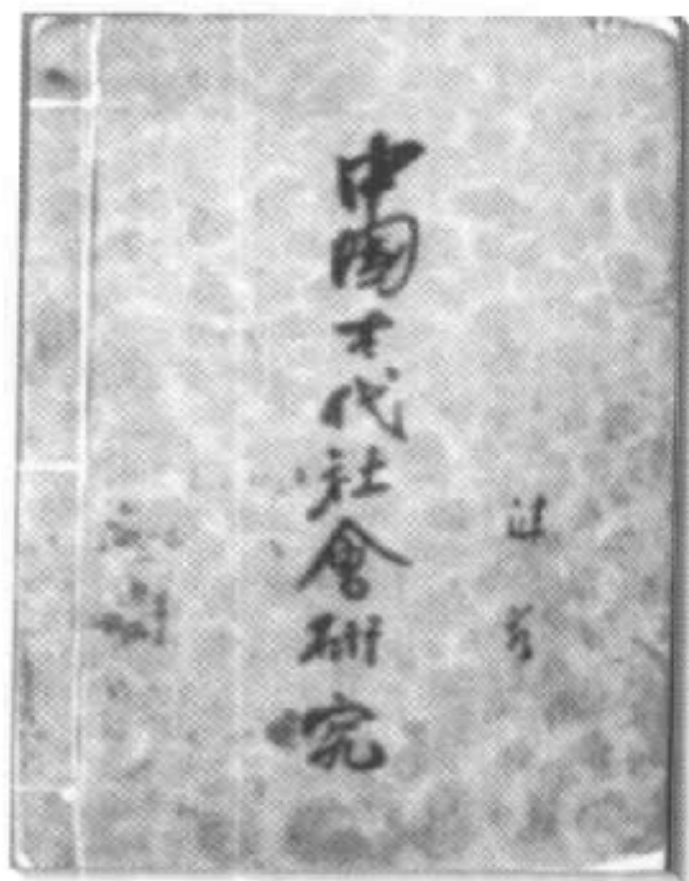 沫若
中國古代社會研究